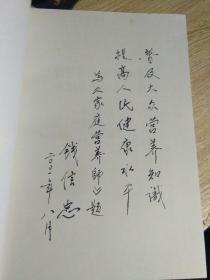 普及大众营养知识
提高人民健康水平
为《家庭营养师》题
钱信忠
二〇〇一年八月